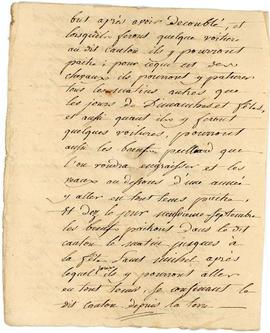 but après avoir decoublé, et
lorsquils feront quelque voiture
au dit canton ils y pourront
paitre; pour ceque est des
chevaux ils pourront y paturer
tous les matins autres que
les jours de Dimanches et fetes,
et aussi quant ils y feront
quelques voitures, pourront
aussi les bœufs pendant que
l'on voudra engraisser et les
veaux au dessous d'une année
y aller en tout tems paitre,
et dez le jour septembre
les bœufs paitront dans le dit
canton le matin jusques à
la fete Saint michel après
lequel jour ils y pourront aller
en tout tems, se confinant le
dit canton depuis la